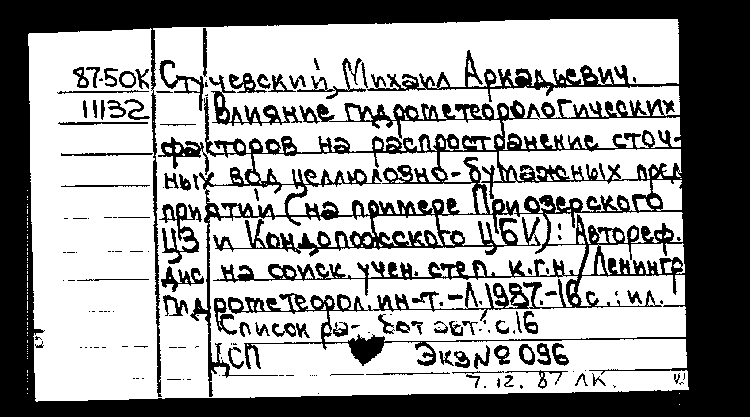 87-50К Стучевский, Михаил Аркадьевич.
11132 Влияние гидрометеорологических
факторов на распространение сточ-
ных вод целлюлозно-бумажных пред
приятий (на примере Приозерского
ЦЗ и Кондопожского ЦБК): Автореф.
дис. на соиск. учен. степ. к.г.н. / Ленингр
гидрометеорол. ин-т. -Л. 1987.-16 с.: ил.
Список ра- бот авт.: с.16
ДСП Экз № 096
7.12.87 ЛК.